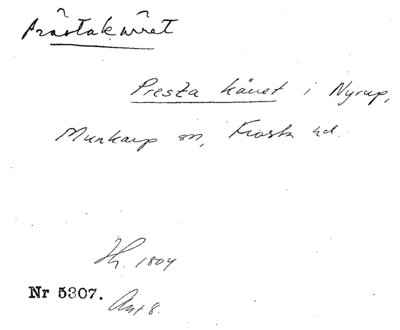 Prästakärret
Presta käret i Nyrup,
Munkarp sn, Frosta hd.
Hy. 1804
Nr 5307.
Akt 8.